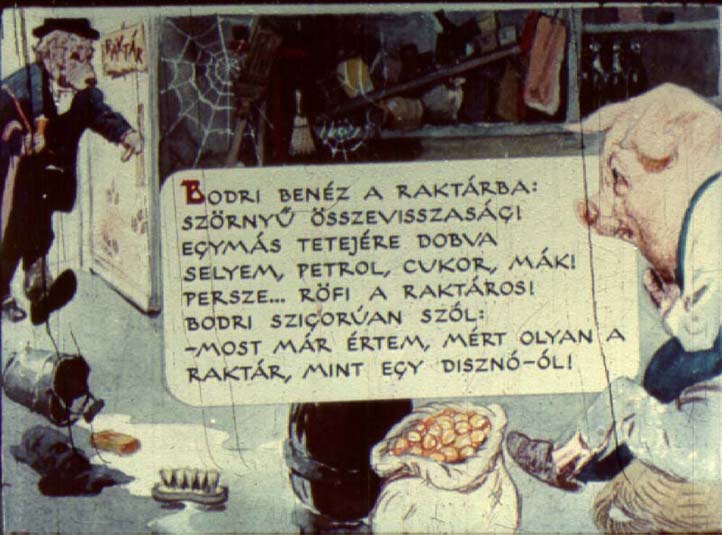 RAKTÁR
BODRI BENÉZ A RAKTÁRBA:
SZÖRNYŰ ÖSSZEVISSZASÁG!
EGYMÁS TETEJÉRE DOBVA
SELYEM, PETROL, CUKOR, MÁK!
PERSZE... RÖFI A RAKTÁROS!
BODRI SZIGORÚAN SZÓL:
-MOST MÁR ÉRTEM, MÉRT OLYAN A
RAKTÁR, MINT EGY DISZNÓ-ÓL!